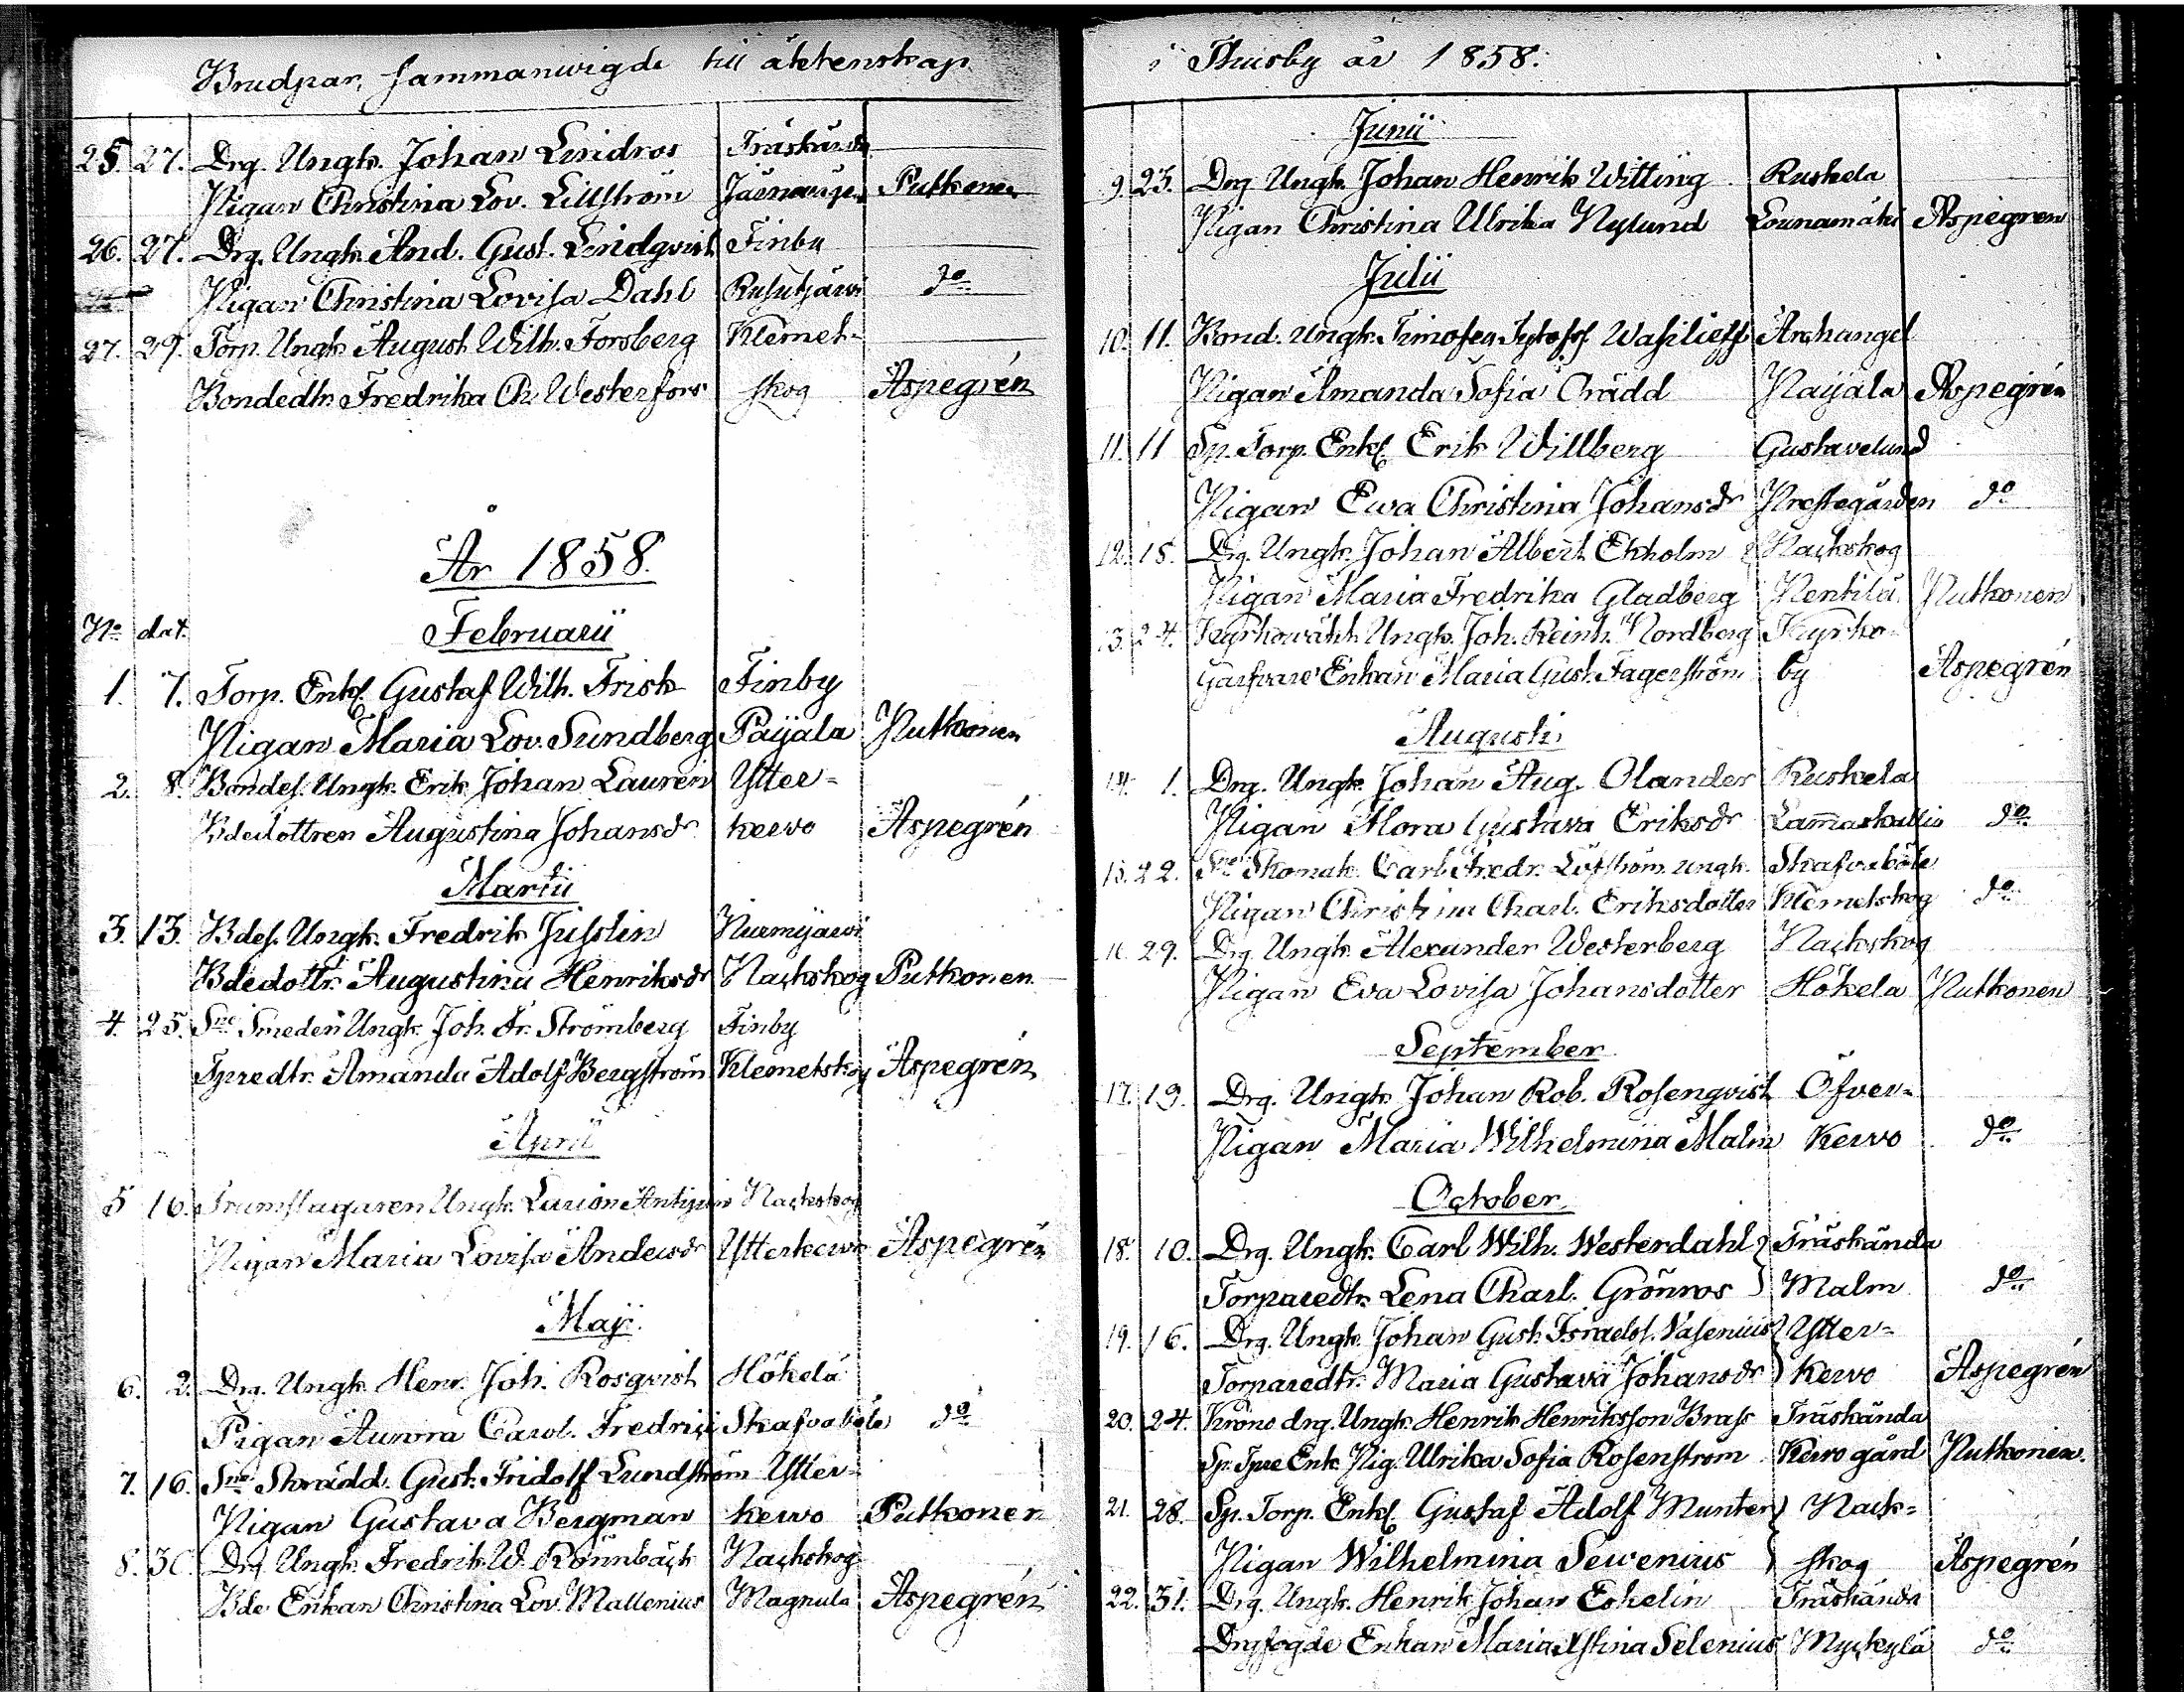 Brudpar, sammanwigde till äktenskap
25. 27. Drg. Ungk. Johan Lindros Träskända
Pigan Christina Lov. Lillström Putkonen
26. 27. Drg. Ungk. And. Gust. Lindqvist Finby
Pigan Christina Lovisa Dahl Rusutjärvi do
27. 29. Torp. Ungk. August Wilh. Forsberg Klemet-
Bondedtr. Fredrika Ch. Westerfors skog Aspegrén
År 1858.
No dat. Februarii
1. 7. Torp. Enkl. Gustaf Wilh. Frisk Finby
Pigan Maria Lov. Sundberg Paijala Putkonen
2. 8. Bondes. Ungk. Erik Johan Lauren Ytter-
Bdedottren Augustina Johansdr kervo Aspegrén
Martii
3. 13. Bdes. Ungk. Fredrik Jusslin Nurmijärvi
Bdedottr. Augustina Henriksdr Nackskog Putkonen
4. 25. Sne Smeden Ungk. Joh. Fr. Strömberg Finby
Tpredtr. Amanda Adolf. Bergström Klemetskog Aspegrén
April
5 16. Trumslagaren Ungk. Larion Nackskog
Pigan Maria Lovisa Andersdr Ytterkervo Aspegrén
Maji
6. 2. Drg. Ungk. Henr. Joh. Rosqvist Hökelä
Pigan Aurora Carol. Skafvaböle do
7. 16. Sne Skrädd. Gust. Fridolf Lundström Ytter-
Pigan Gustava Bergman kervo Putkonen
8. 30. Drg. Ungk. Fredrik W. Rönnbäck Nackskog
Bde Enkan Christina Lov. Mallenius Magnula Aspegrén
i Thusby år 1858.
Junii
9. 23. Drg. Ungk. Johan Henrik Witting Ruskela
Pigan Christina Ulrika Nylund Lounamäki Aspegren
Julii
10. 11. Bond. Ungk. Timofej Wasilieff Archangel
Pigan Amanda Sofia Crädd Paijala Aspegrén
11. 11 Sp. Torp. Enkl. Erik Willberg Gustavelund
Pigan Ewa Christina Johansdr Prestegården do
12. 18. Drg. Ungk. Johan Albert Ekholm Nackskog
Pigan Maria Fredrika Gladberg Pentilä Putkonen
13. 24. Kyrkowäkt. Ungk. Joh. Reinh. Nordberg Kyrko-
Garfvare Enkan Maria Gust. Fagerström by Aspegrén
Augusti
14. 1. Drg. Ungk. Johan Aug. Olander Ruskela
Pigan Flora Gustava Eriksdr Lammaskallio do
15. 22. Sne Skomak. Carl Fredr. Löfström ungk. Skafvaböle
Pigan Christina Charl. Eriksdotter Klemetskog do
16. 29. Drg. Ungk. Alexander Westerberg Nackskog
Pigan Eva Lovisa Johansdotter Hökela Putkonen
September
17. 19. Drg. Ungk. Johan Rob. Rosenqvist Öfver-
Pigan Maria Wilhelmina Malm Kervo do
October
18. 10. Drg. Ungk. Carl Wilh. Westerdahl Träskända
Torparedtr. Lena Charl. Grönros Malm do
19. 16. Drg. Ungk. Johan Gust. Israels. Vasenius Ytter-
Torparedtr. Maria Gustava Johansdr Kervo Aspegrén
20. 24. Krono drg. Ungk. Henrik Henriksson Brass Träskända
Sp. Tpre Enk. Pig. Ulrika Sofia Rosenström Kervo gård Putkonen.
21. 28. Sp. Torp. Enkl. Gustaf Adolf Munter Nack-
Pigan Wilhelmina Sewenius skog Aspegrén
22. 31. Drg. Ungk. Henrik Johan Eskelin Träskända
Drgfogde Enkan Maria Xstina Selenius Myckylä do